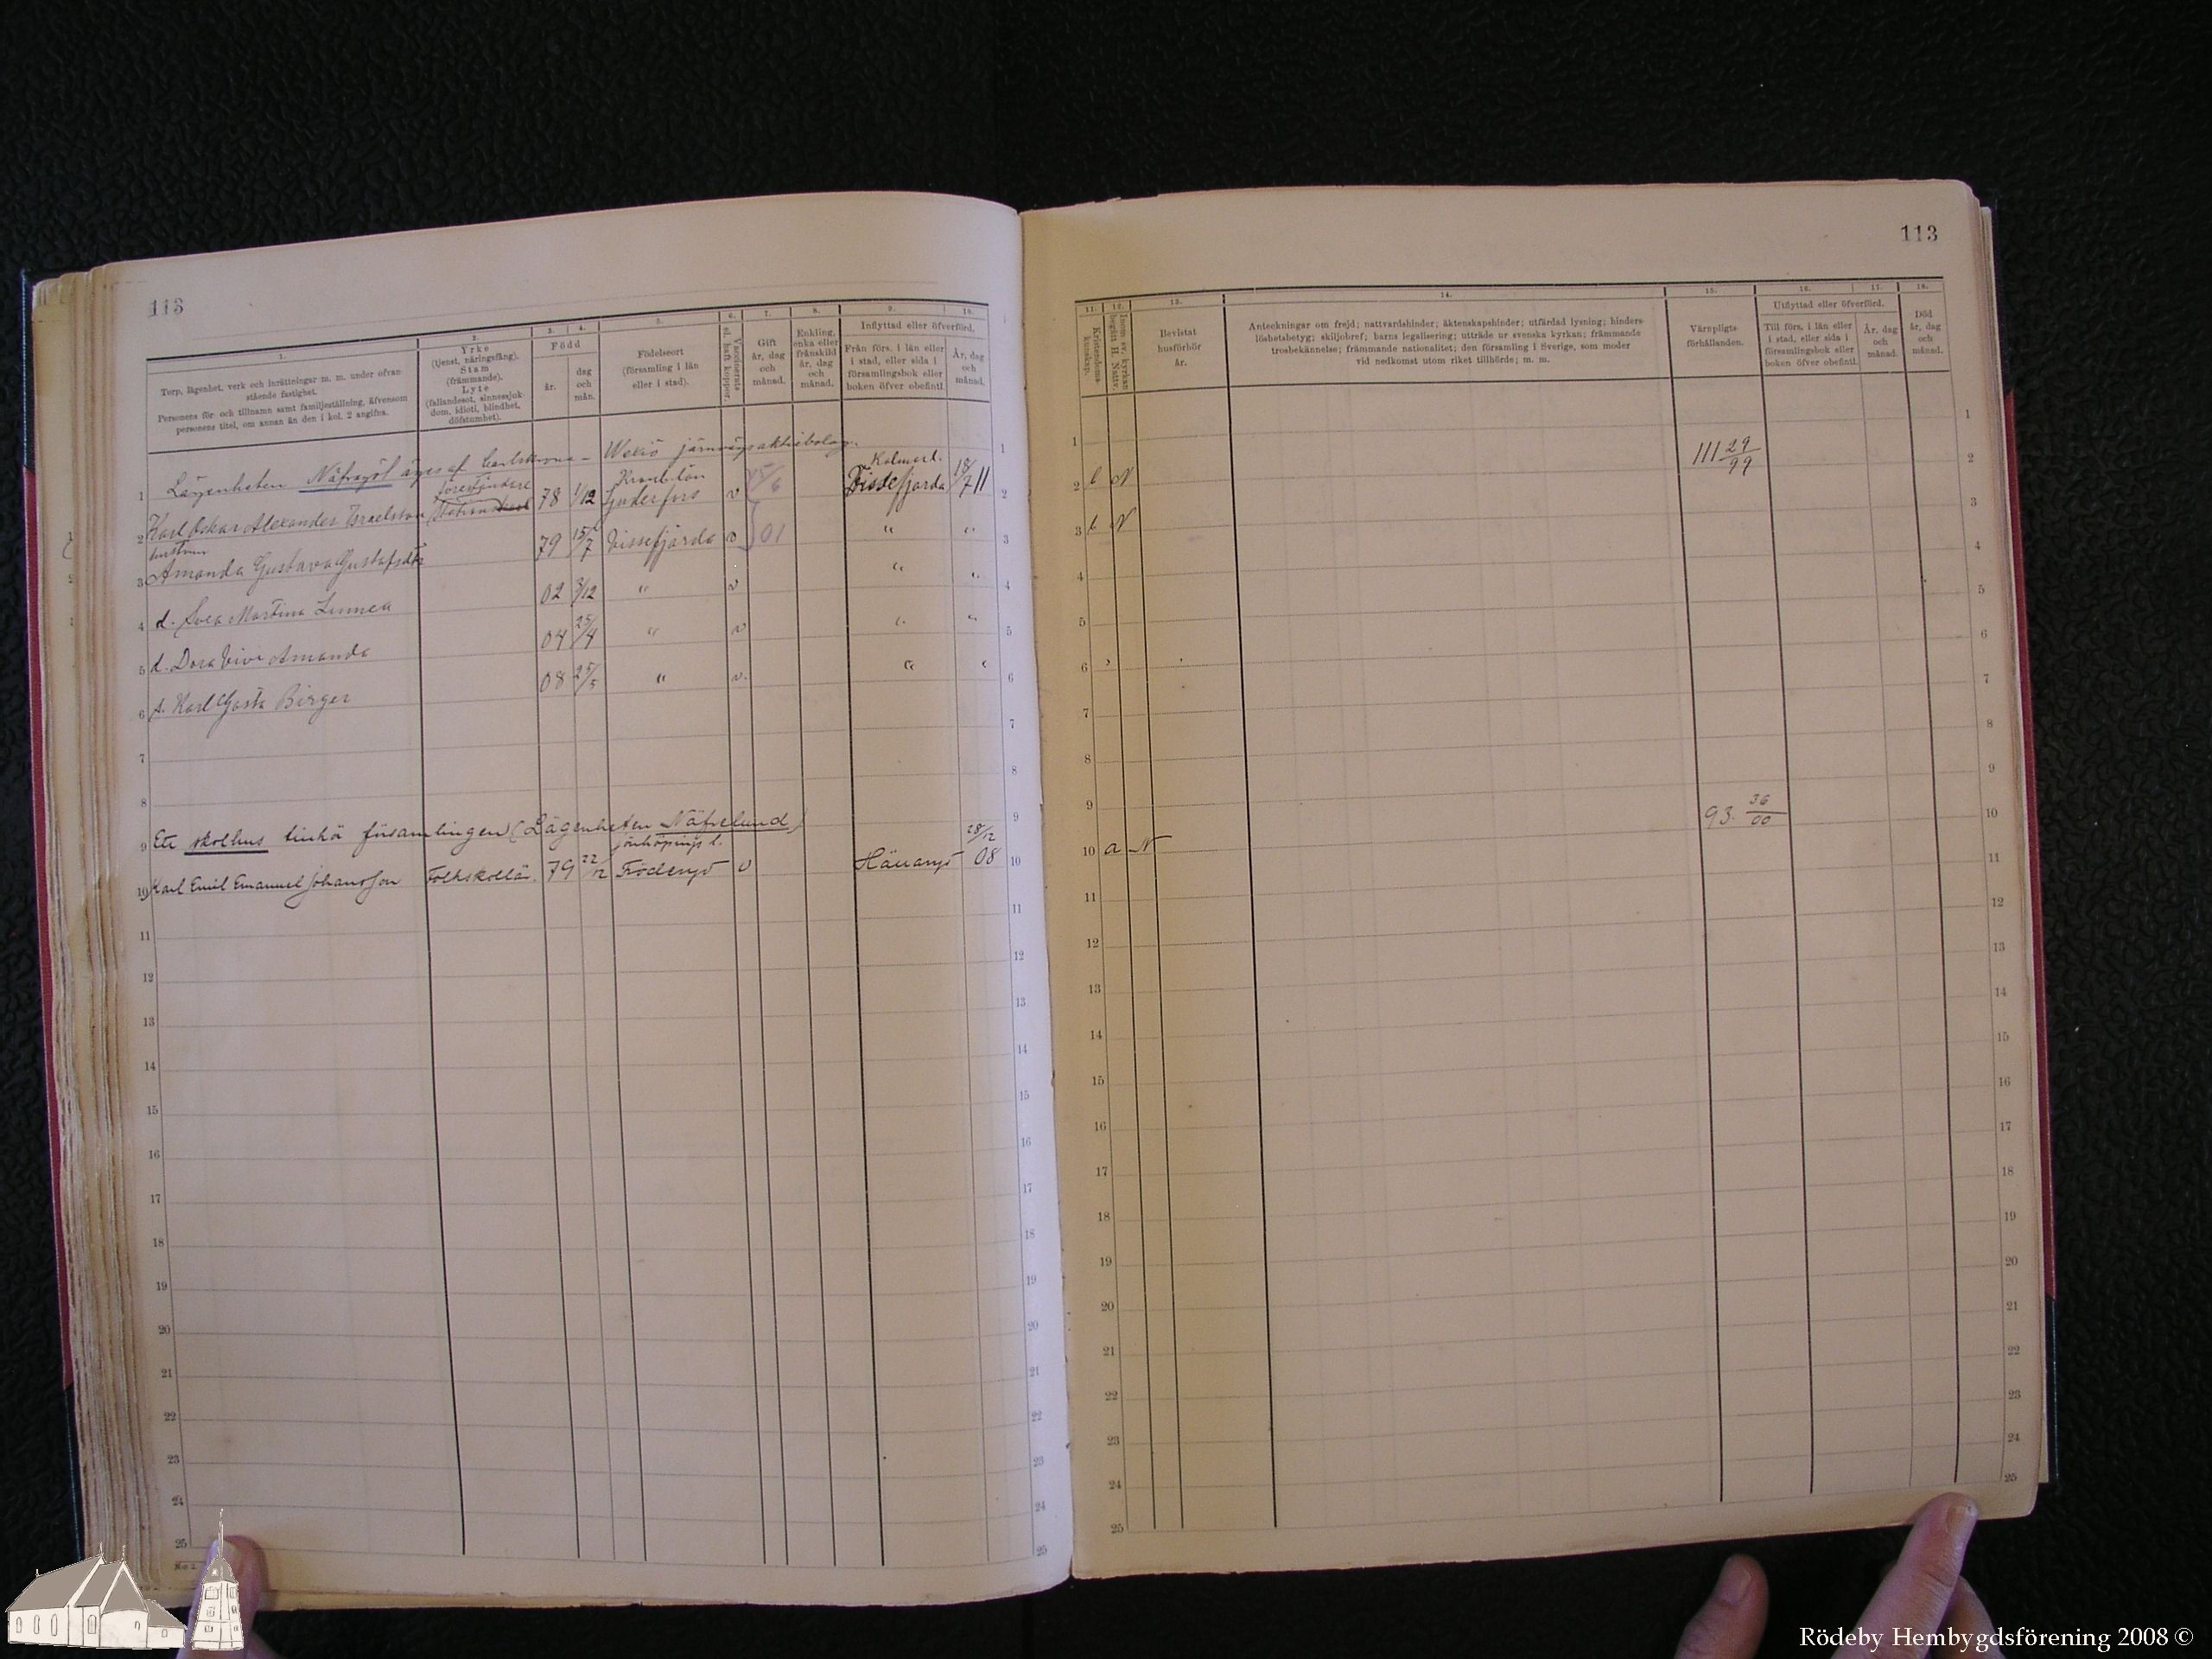 113
1. 2. 3. 4. 5. 6. 7. 8. 9. 10.
Torp, lägenhet, verk och inrättningar m. m. under ofvanstående fastighet.
Personens för- och tillnamn samt familjeställning, äfvensom personens titel, om annan än den i kol. 2 angifna.
Yrke (tjenst, näringsfång). Stam (främmande). Lyte (fallandesot, sinnessjukdom, idioti, blindhet, döfstumhet).
Född
år.
dag och mån.
Födelseort (församling i län eller i stad).
Vaccinerats el. haft koppor.
Gift år, dag och månad.
Enkling, enka eller frånskild år, dag och månad.
Inflyttad eller öfverförd.
Från förs. i län eller i stad, eller sida i församlingsbok eller boken öfver obefintl.
År, dag och månad.
1 Lägenheten Näfragöl äges af Carlskrona - Wexiö järnvägsaktiebolag. 1
2 Karl Oskar Alexander Israelsson föreståndare 78 1/12 Kronob. län Ljuderfors v 25/6 Kalmar l. Vissefjerda 18/7 11 2
hustrun
3 Amanda Gustava Gustafsdtr 79 15/7 Vissefjärda v 01 " " 3
4 d. Svea Martina Linnea 02 3/12 " v " " 4
5 d. Dora Vivi Amanda 04 25/4 " v " " 5
6 s. Karl Gösta Birger 08 25/5 " v. " " 6
7 7
8 8
9 Ett skolhus tillhör församlingen (Lägenheten Näfvelund) 9
10 Karl Emil Emanuel Johansson Folkskollär. 79 22/12 Jönköpings l. Fröderyd v Hällaryd 28/12 08 10
11 11
12 12
13 13
14 14
15 15
16 16
17 17
18 18
19 19
20 20
21 21
22 22
23 23
24 24
25 25
113
11. 12. 13. 14. 15. 16. 17. 18.
Kristendomskunskap.
Inom sv. kyrkan begått H. Nattv.
Bevistat husförhör år.
Anteckningar om frejd; nattvardshinder; äktenskapshinder; utfärdad lysning; hinderslöshetsbetyg; skiljobref; barns legalisering; utträde ur svenska kyrkan; främmande trosbekännelse; främmande nationalitet; den församling i Sverige, som moder vid nedkomst utom riket tillhörde; m. m.
Värnpligtsförhållanden.
Utflyttad eller öfverförd.
Till förs. i län eller i stad, eller sida i församlingsbok eller boken öfver obefintl.
År, dag och månad.
Död år, dag och månad.
1 1
2 b N 111 29/99 2
3 b N 3
4 4
5 5
6 6
7 7
8 8
9 9
10 a N 93. 36/00 10
11 11
12 12
13 13
14 14
15 15
16 16
17 17
18 18
19 19
20 20
21 21
22 22
23 23
24 24
25 25
Rödeby Hembygdsförening 2008 ©